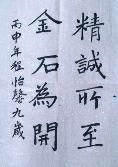 精誠所至
金石為開
丙申年程怡馨九歲